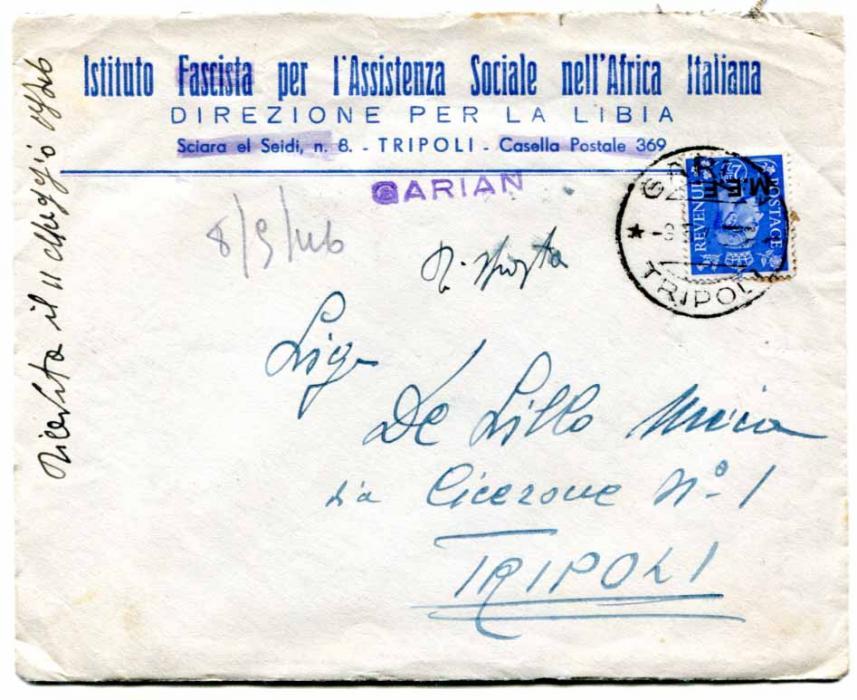 Istituto Fascista per l'Assistenza Sociale nell'Africa Italiana
DIREZIONE PER LA LIBIA
Sciara el Seidi, n. 8. - TRIPOLI - Casella Postale 369
GARIAN
M.E.F.
REVENUE
POSTAGE
TRIPOLI
8/5/46
Risposta
Sig
De Lillo
Via Cicerone Nº 1
TRIPOLI
Ricevuta il 11 Maggio